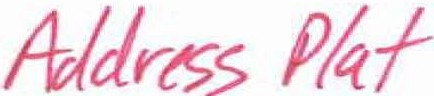 Address Plat